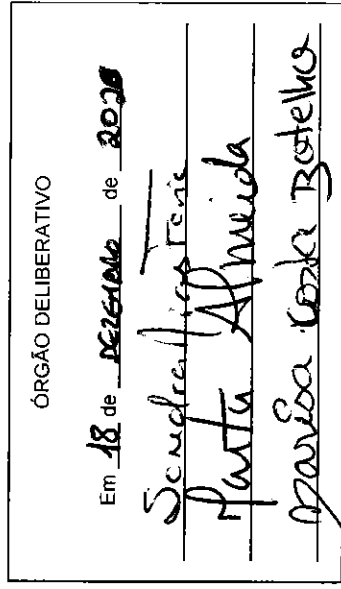 ÓRGÃO DELIBERATIVO
Em 18 de DEZEMBRO de
Sandra
Marta Almeida
Marisa Costa Botelho